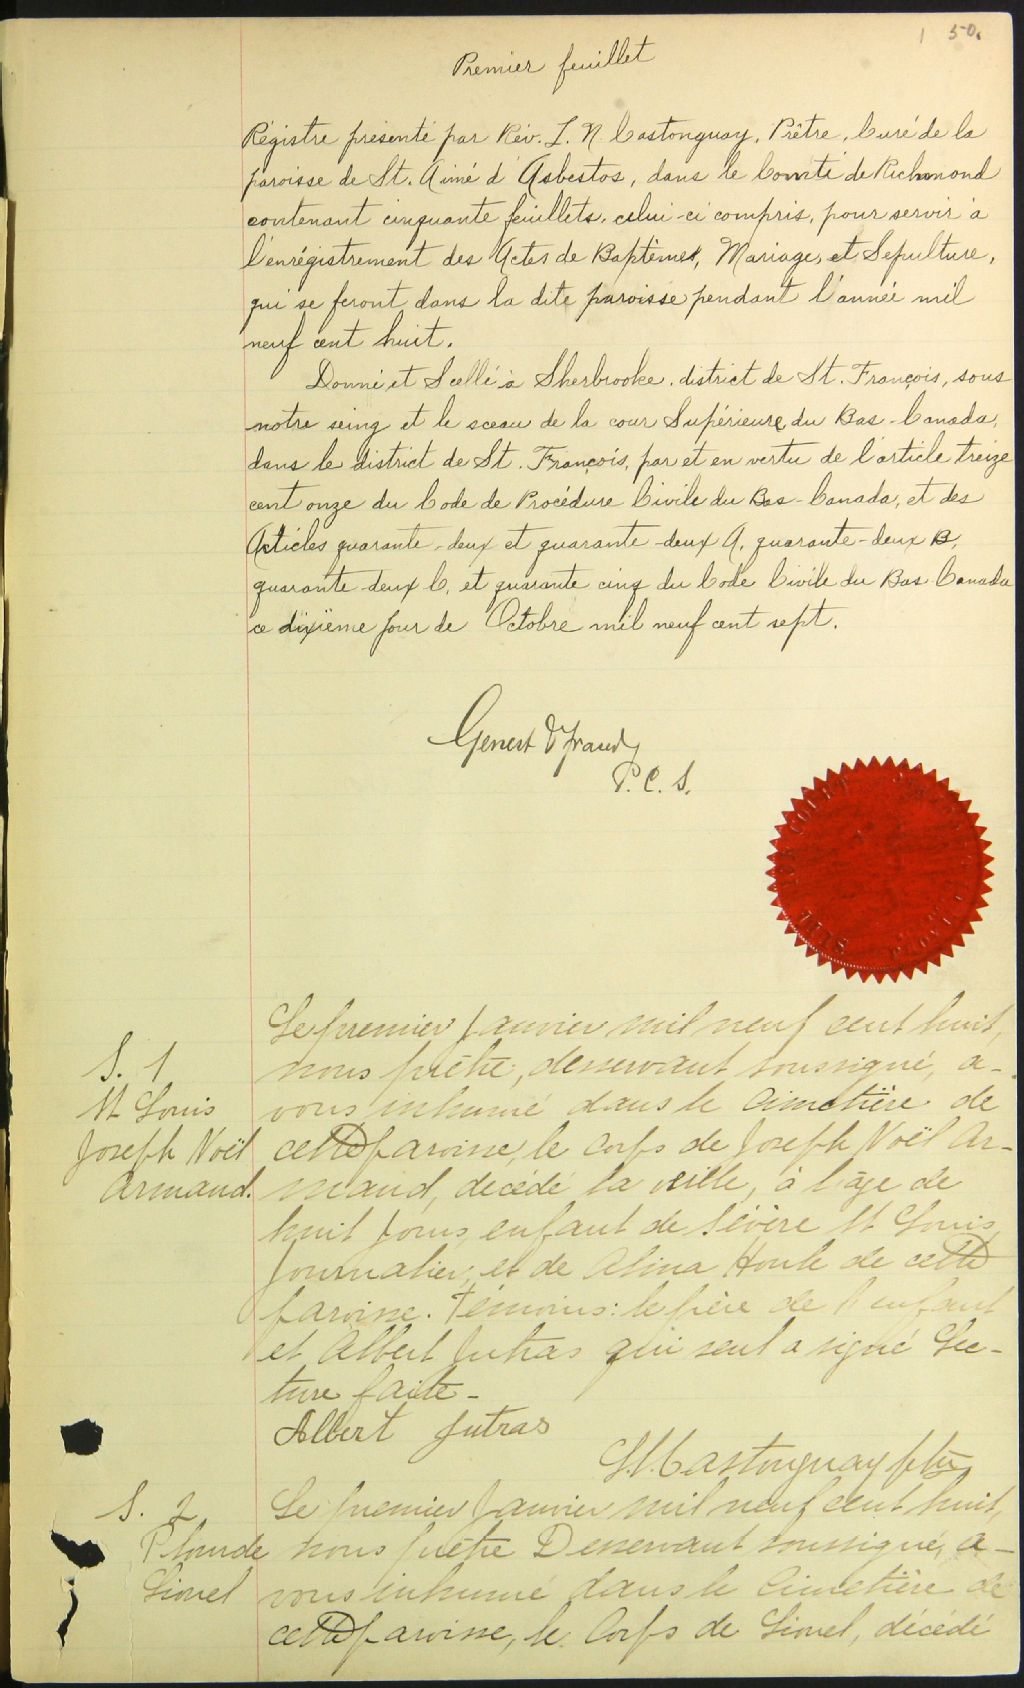 1 50.
Premier feuillet
Régistre présenté par Rév. L. N Castonguay, Prêtre, Curé de la
paroisse de St. Aimé d'Asbestos, dans le Comté de Richmond
contenant cinquante feuillets, celui-ci compris, pour servir à
l'enrégistrement des Actes de Baptêmes, Mariages, et Sépulture,
qui se feront dans la dite paroisse pendant l'année mil
neuf cent huit.
Donné et Scellé à Sherbrooke, district de St. François, sous
notre seing et le sceau de la cour Supérieure du Bas-Canada,
dans le district de St. François, par et en vertu de l'article treize
cent onze du Code de Procédure Civile du Bas-Canada, et des
Articles quarante-deux et quarante-deux A, quarante-deux B,
quarante-deux C, et quarante cinq du Code Civile du Bas-Canada
ce dixième jour de Octobre mil neuf cent sept.
Genest
P. C. S.
Le premier Janvier mil neuf cent huit,
S. 1
nous prêtre, desservant soussigné, a-
St Louis
vons inhumé dans le Cimetière de
Joseph Noël
cette paroisse, le corps de Joseph Noël Ar-
Armand.
mand, décédé la veille, à l'âge de
huit jours, enfant de Sévère St Louis,
Journalier, et de Alina Houle de cette
paroisse. Témoins: le père de l'enfant
et Albert Jutras qui seul a signé Lec-
ture faite-
Albert Jutras
L.N. Castonguay ptre
S. 2
Le premier Janvier mil neuf cent huit,
Plourde
nous prêtre Desservant soussigné, a-
Lionel
vons inhumé dans le Cimetière de
cette paroisse, le Corps de Lionel, décédé